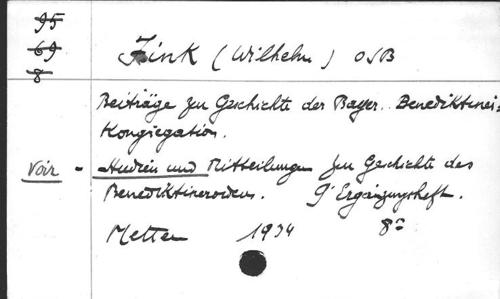 95
69
8
Fink (Wilhelm) OSB
Beiträge zur Geschichte der Bayer. Benediktiner-
Kongregation.
Voir - Studien und Mitteilungen zur Geschichte des
Benediktinerordens. 9' Ergänzungsheft.
Metten 1934 8°